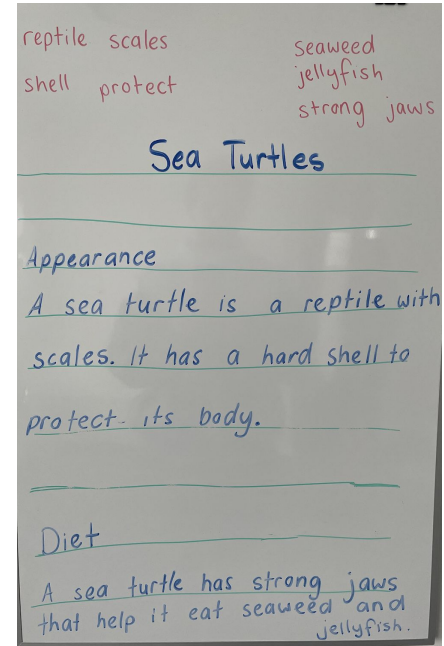 reptile scales
shell protect
seaweed
jellyfish
strong jaws
Sea Turtles
Appearance
A sea turtle is a reptile with
scales. It has a hard shell to
protect its body.
Diet
A sea turtle has strong jaws
that help it eat seaweed and
jellyfish.